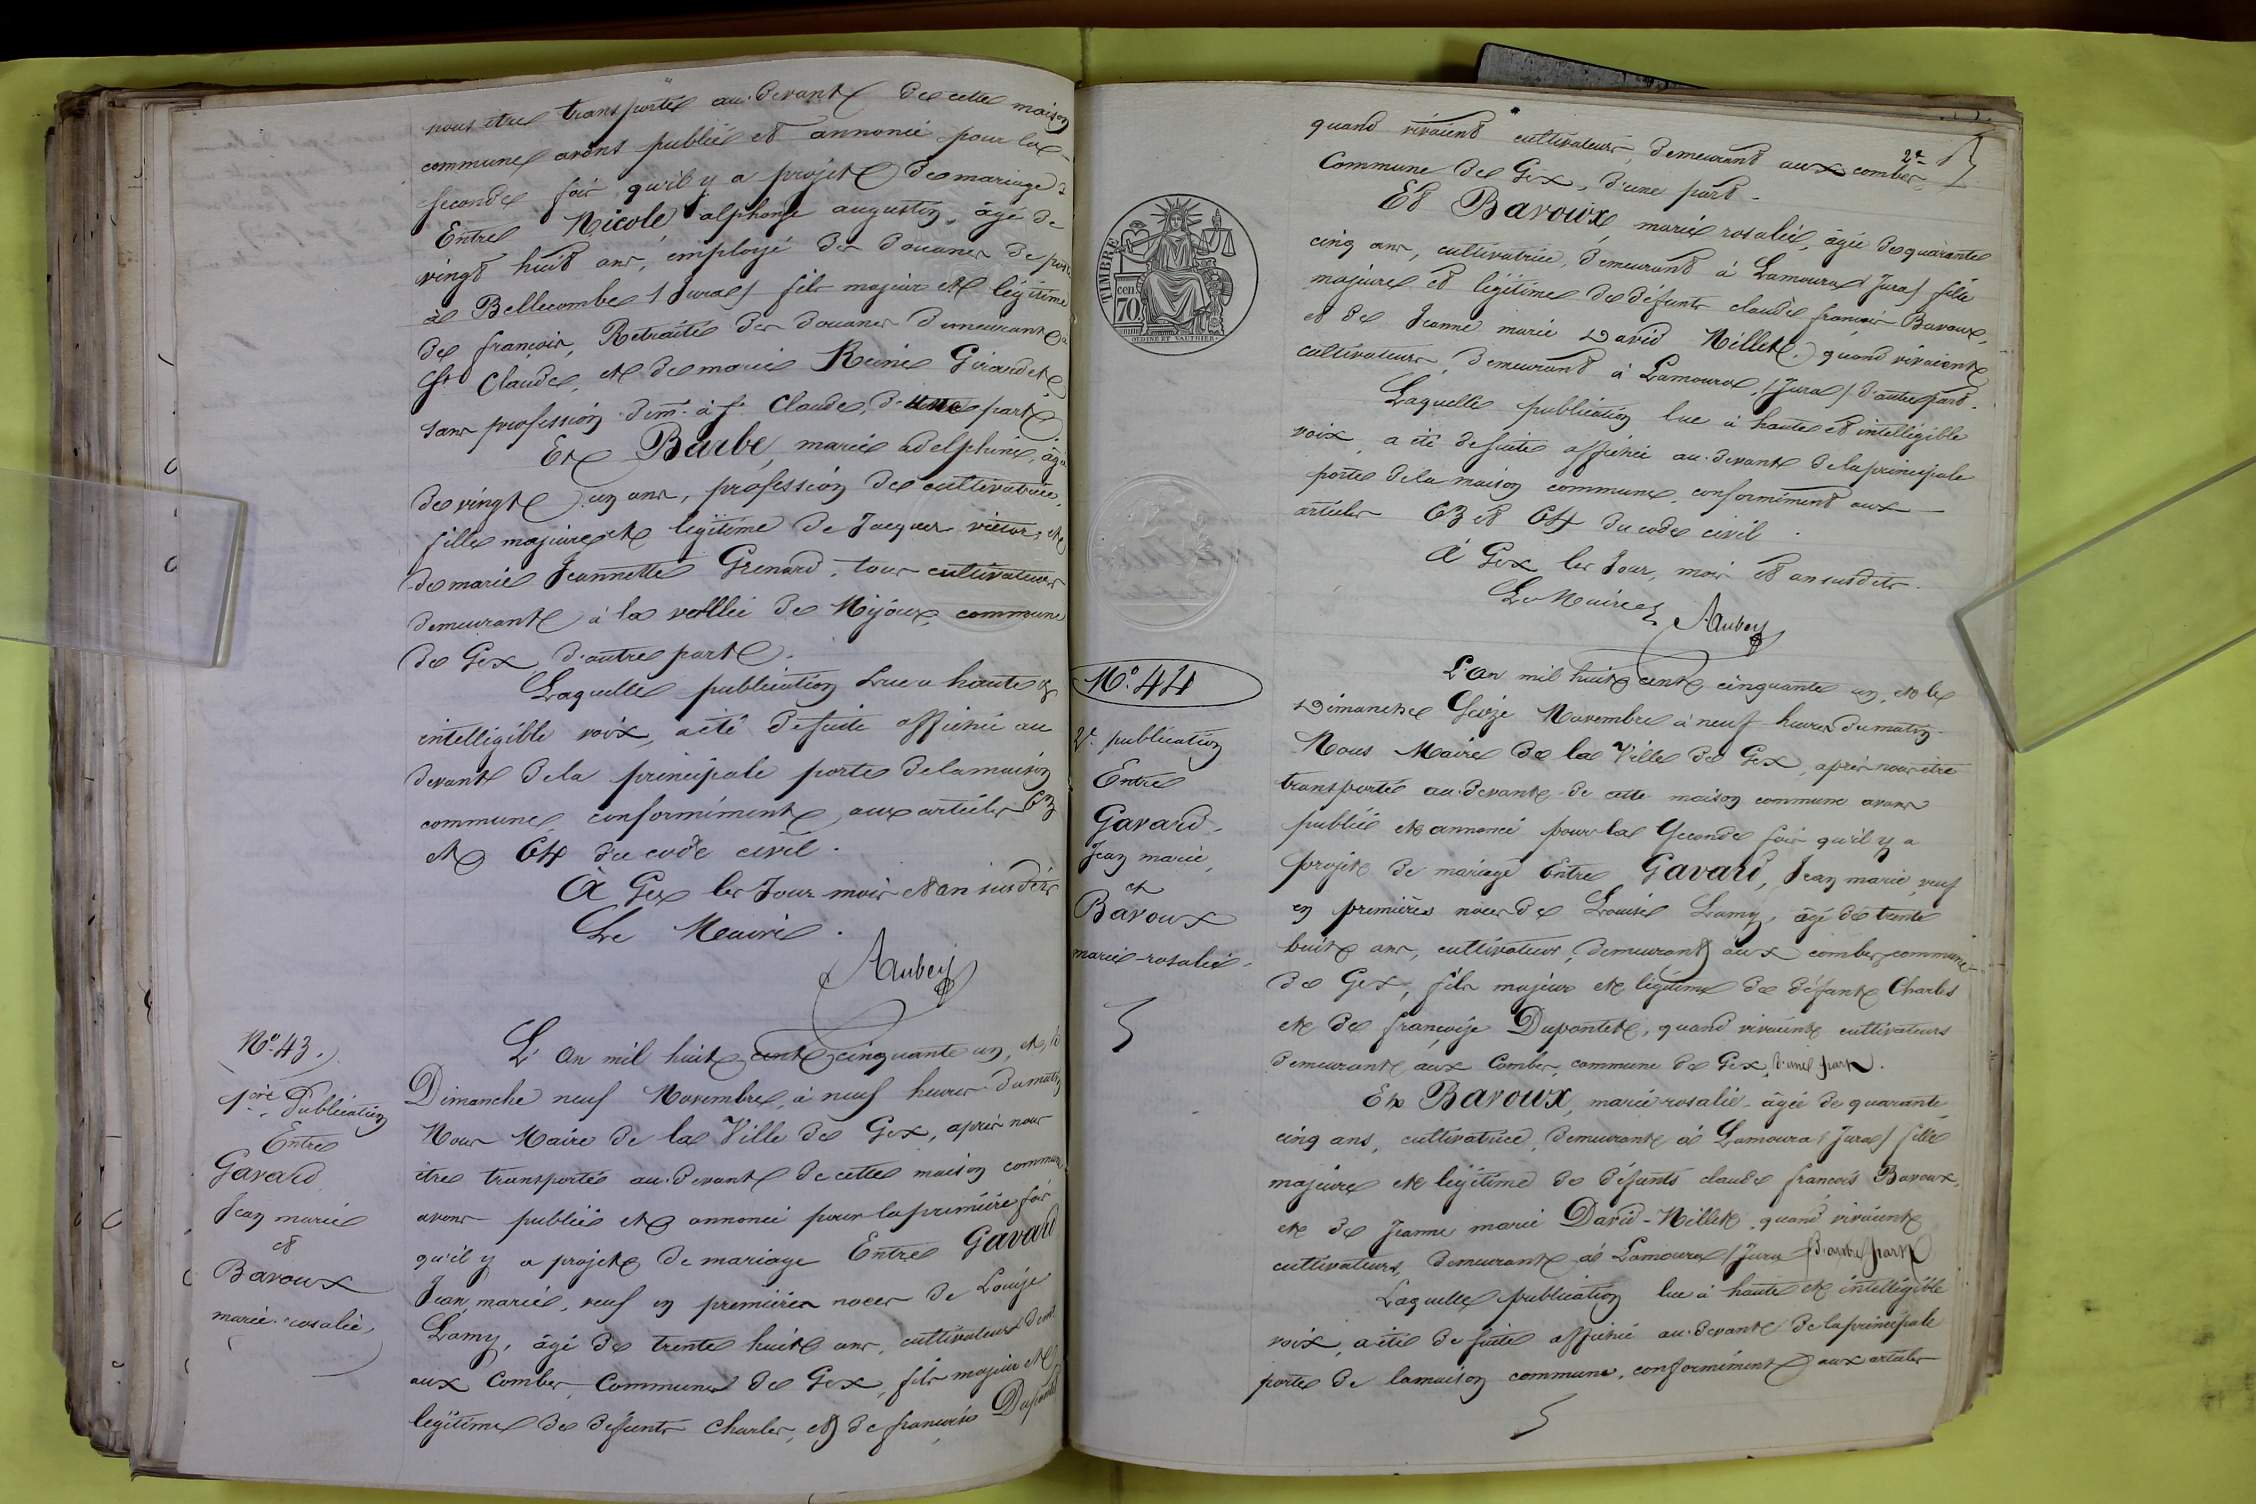 nous être transportés au-devant de cette maison
commune avons publié et annoncé pour la
seconde fois qu'il y a projet de mariage
Entre Nicole alphonse augustin, âgé de
vingt huit ans, employé des douanes de poste
à Bellecombe (Jura) fils majeur et légitime
de françois, Retraité des douanes demeurant à
St Claude, et de marie Reine Girardet,
sans profession dem.t à St Claude, d'une part
Et Barbe, marie adelphine, âgée
de vingt un ans, profession de cultivatrice,
fille majeure et legitime de Jacques victor, et
de marie Jeannette Grenard, tous cultivateurs
demeurant à la vallée de Mijoux, commune
de Gex, d'autre part.
Laquelle publication lue à haute et
intelligible voix, a été de suite affichée au
devant de la principale porte de la maison
commune, conformément aux articles 63
et 64 du code civil.
A Gex les Jour mois et an susdits
Le Maire.
Aubery
No. 43.
1ère Publication
Entre
Gavard
Jean marie
et
Baroux
marie-rosalie,
L'An mil huit cent cinquante un, et le
Dimanche neuf Novembre, à neuf heures du matin
Nous Maire de la Ville de Gex, après nous
être transportés au-devant de cette maison commune
avons publié et annoncé pour la première fois
qu'il y a projet de mariage Entre Gavard
Jean marie, veuf en premières noces de Louise
Lamy, âgé de trente huit ans, cultivateur dem.t
aux Combes, Commune de Gex, fils majeur et
legitime de défunts Charles, et de françoise Dupontet
2e
quand vivaient cultivateurs, demeurant aux combes,
Commune de Gex, d'une part.
Et Baroux, marie rosalie, âgée de quarante
cinq ans, cultivatrice, demeurant à Lamoura (Jura) fille
majeure et légitime de défunts claude françois Baroux,
et de Jeanne marie David Millet, quand vivaient
cultivateurs, demeurant à Lamoura, (Jura) d'autre part.
Laquelle publication lue à haute et intelligible
voix, a été de suite affichée au-devant de la principale
porte de la maison commune, conformément aux
articles 63 et 64 du code civil.
A Gex les Jour, mois et an susdits.
Le Maire
Aubery
TIMBRE
70 cen
OUDINE ET VAUTHIER
No. 44
2e publication
Entre
Gavard,
Jean marie,
et
Baroux
marie-rosalie.
L'An mil huit cent cinquante un, et le
Dimanche Seize Novembre à neuf heures du matin
Nous Maire de la Ville de Gex, après nous être
transportés au-devant de cette maison commune avons
publié et annoncé pour la Seconde fois qu'il y a
projet de mariage Entre Gavard, Jean marie, veuf
en premières noces de Louise Lamy, âgé de trente
huit ans, cultivateur, demeurant aux combes, commune
de Gex, fils majeur et légitime de défunts Charles
et de françoise Dupontet, quand vivaient cultivateurs
demeurant aux Combes, commune de Gex, d'une part.
Et Baroux, marie rosalie, âgée de quarante
cinq ans, cultivatrice, demeurant à Lamoura (Jura) fille
majeure et légitime de défunts claude françois Baroux,
et de Jeanne marie David-Millet, quand vivaient
cultivateurs, demeurant à Lamoura (Jura d'autre part
Laquelle publication lue à haute et intelligible
voix, a été de suite affichée au-devant de la principale
porte de la maison commune, conformément aux articles